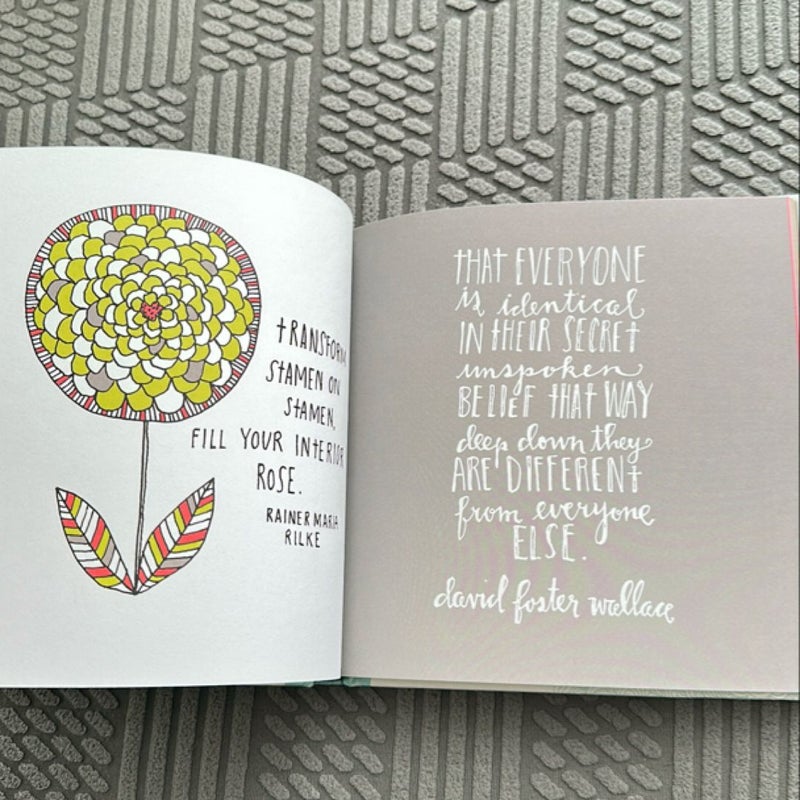 TRANSFORM
STAMEN ON
STAMEN,
FILL YOUR INTERIOR
ROSE.
RAINER MARIA
RILKE
THAT EVERYONE
is identical
IN THEIR SECRET
unspoken
BELIEF THAT WAY
deep down they
ARE DIFFERENT
from everyone
ELSE.
david foster wallace